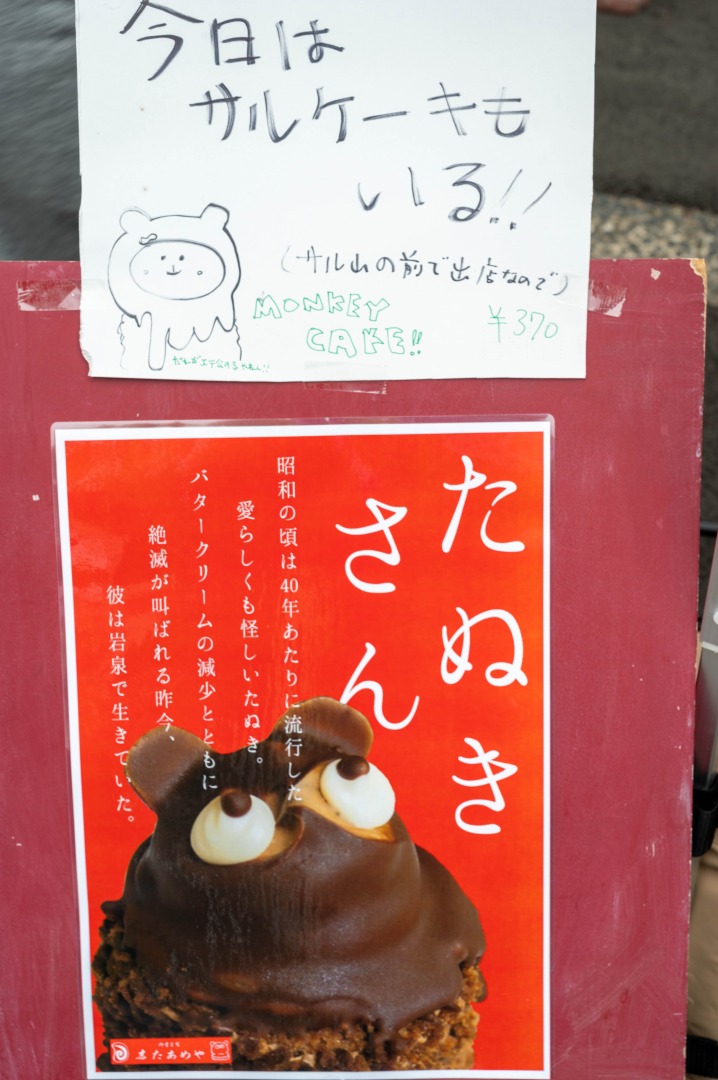 今日は
サルケーキも
いる!!
(サル山の前で出店なので)
MONKEY
CAKE!!
¥370
たぬき
さん
昭和の頃は40年あたりに流行した
愛らしくも怪しいたぬき。
バタークリームの減少とともに
絶滅が叫ばれる昨今、
彼は岩泉で生きていた。
志たあめや